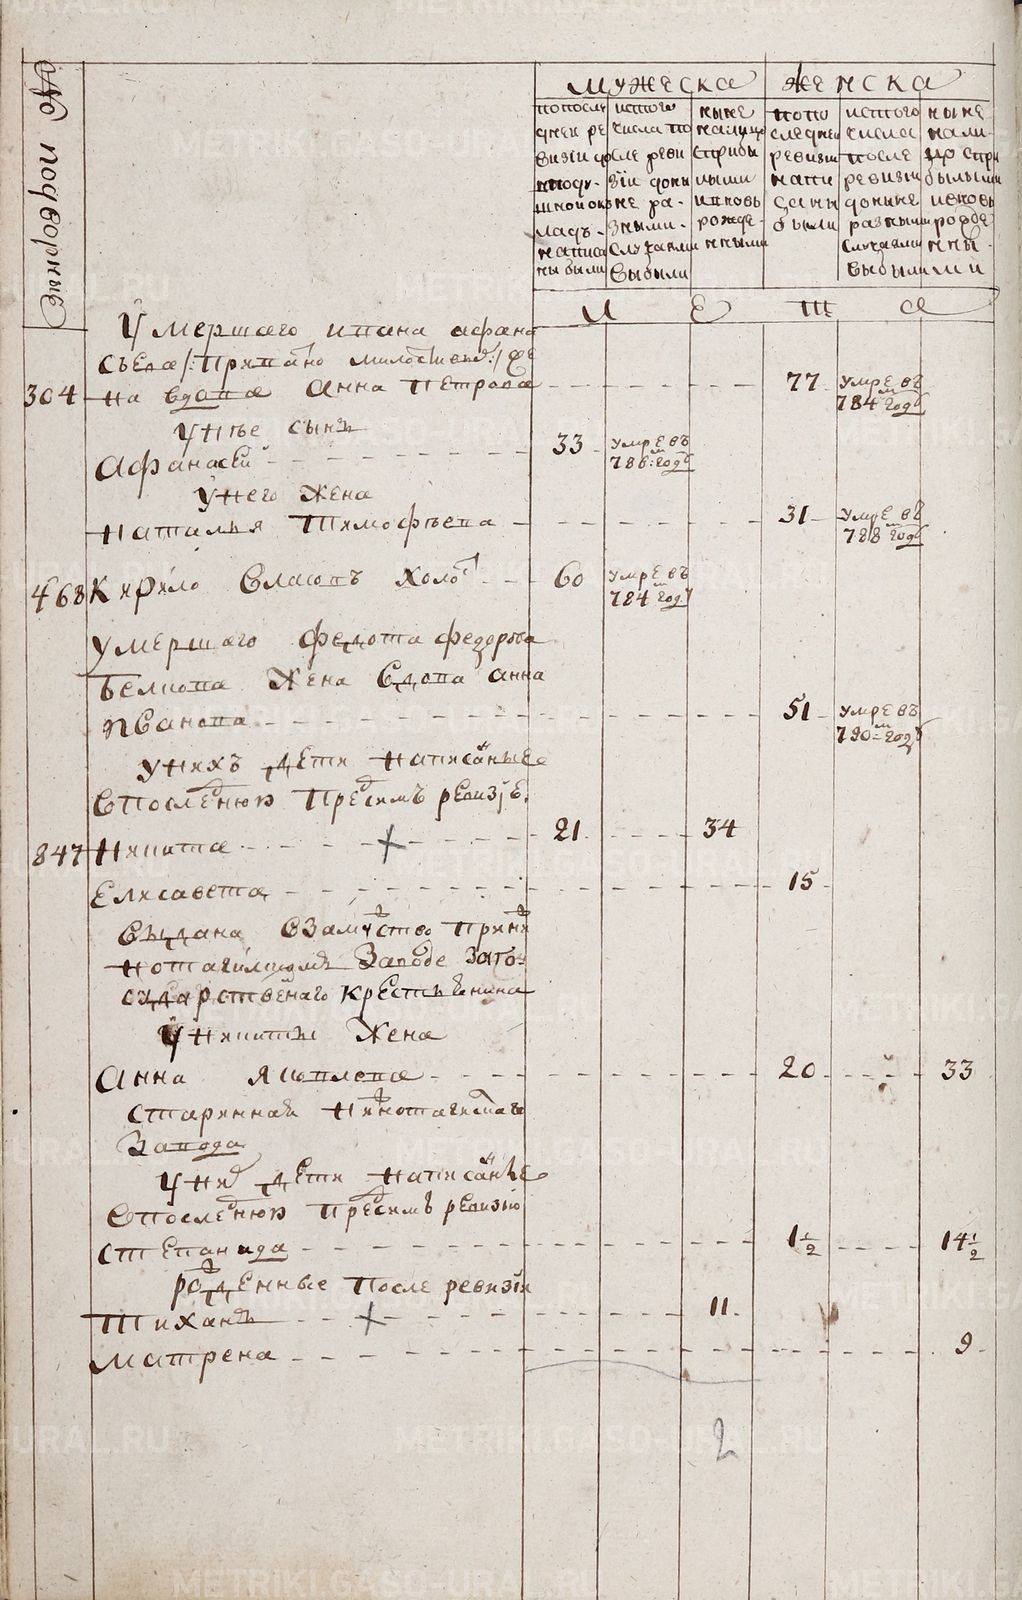 № подворные
мужеска
женска
по после
дней ре
визiи
в подуш
ной ок
лад
написа
ны были
ис того
числа по
сле реви
зiи доны
не ра-
зными
случаями
выбыли
ныне
налицо
с прибы
лыми
и вновь
рожде-
нными
по по
следней
ревизiи
напи
саны
были
ис того
числа
после
ревизiи
доныне
разными
случаями
выбыли
ныне
нали-
цо с при
былыми
и вновь
рожде
нны
ми
лета
Умершаго ивана афана
сьева /: /
304 на вдова Анна Петрова 77 умре в 784 м году
у нее сынъ
Афанасей 33 умре въ 786 м году
у него жена
Наталья Тимофеева 31 умре в 788 м году
468 Кирило Власовъ холост 60 умре въ 784 м году
умершаго федота федорова
Белкова жена вдова анна
Иванова 51 умре въ 790 м году
у нихъ дети написанные
в последнюю пред симъ ревизiю
847 Никита 21 34
Елисавета 15
выдана в замужство при ни
жнотагилском заводе за го
сударственнаго крестьянина
у никиты жена
Анна Яковлева 20 33
старинная нижнотагилскаго
завода
у них дети написанные
в последнюю пред симъ ревизiю
степанида 1½ 14½
рожденные после ревизiи
Тиханъ 11
матрена 9
2
METRIKI.GASO-URAL.RU